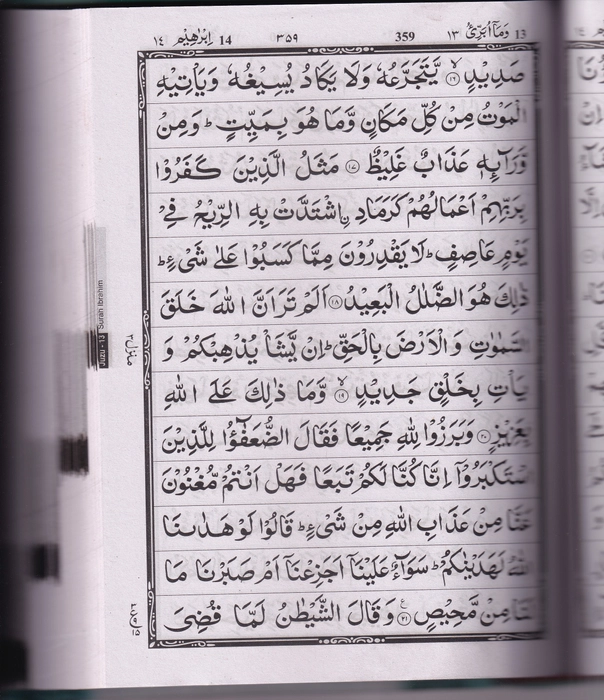 13 وَمَآ اُبَرِّئُ ١٣ 359 ٣٥٩ 14 اِبْرٰهِيْم ١٤
صَدِيْدٍ ۙ‏﴿۱۶﴾ يَّتَجَرَّعُهٗ وَلَا يَكَادُ يُسِيْغُهٗ وَيَاْتِيْهِ
الْمَوْتُ مِنْ كُلِّ مَكَانٍ وَّمَا هُوَ بِمَيِّتٍ ؕ وَمِنْ
وَّرَآئِهٖ عَذَابٌ غَلِيْظٌ ﴿۱۷﴾ مَثَلُ الَّذِيْنَ كَفَرُوْا
بِرَبِّهِمْ اَعْمَالُهُمْ كَرَمَادِ ۨاشْتَدَّتْ بِهِ الرِّيْحُ فِيْ
يَوْمٍ عَاصِفٍ ؕ لَا يَقْدِرُوْنَ مِمَّا كَسَبُوْا عَلٰى شَىْءٍ ؕ
ذٰلِكَ هُوَ الضَّلٰلُ الْبَعِيْدُ ﴿۱۸﴾ اَلَمْ تَرَ اَنَّ اللّٰهَ خَلَقَ
السَّمٰوٰتِ وَالْاَرْضَ بِالْحَقِّ ؕ اِنْ يَّشَاْ يُذْهِبْكُمْ وَ
يَاْتِ بِخَلْقٍ جَدِيْدٍ ۙ‏﴿۱۹﴾ وَّمَا ذٰلِكَ عَلَى اللّٰهِ
بِعَزِيْزٍ ﴿۲۰﴾ وَبَرَزُوْا لِلّٰهِ جَمِيْعًا فَقَالَ الضُّعَفٰٓؤُا لِلَّذِيْنَ
اسْتَكْبَرُوْۤا اِنَّا كُنَّا لَكُمْ تَبَعًا فَهَلْ اَنْتُمْ مُّغْنُوْنَ
عَنَّا مِنْ عَذَابِ اللّٰهِ مِنْ شَىْءٍ ؕ قَالُوْا لَوْ هَدٰٮنَا
اللّٰهُ لَهَدَيْنٰكُمْ ؕ سَوَآءٌ عَلَيْنَاۤ اَجَزِعْنَاۤ اَمْ صَبَرْنَا مَا
لَنَا مِنْ مَّحِيْصٍ ﴿۲۱﴾ ع وَقَالَ الشَّيْطٰنُ لَمَّا قُضِىَ
Juzu - 13 Surah Ibrahim
منزل ٣